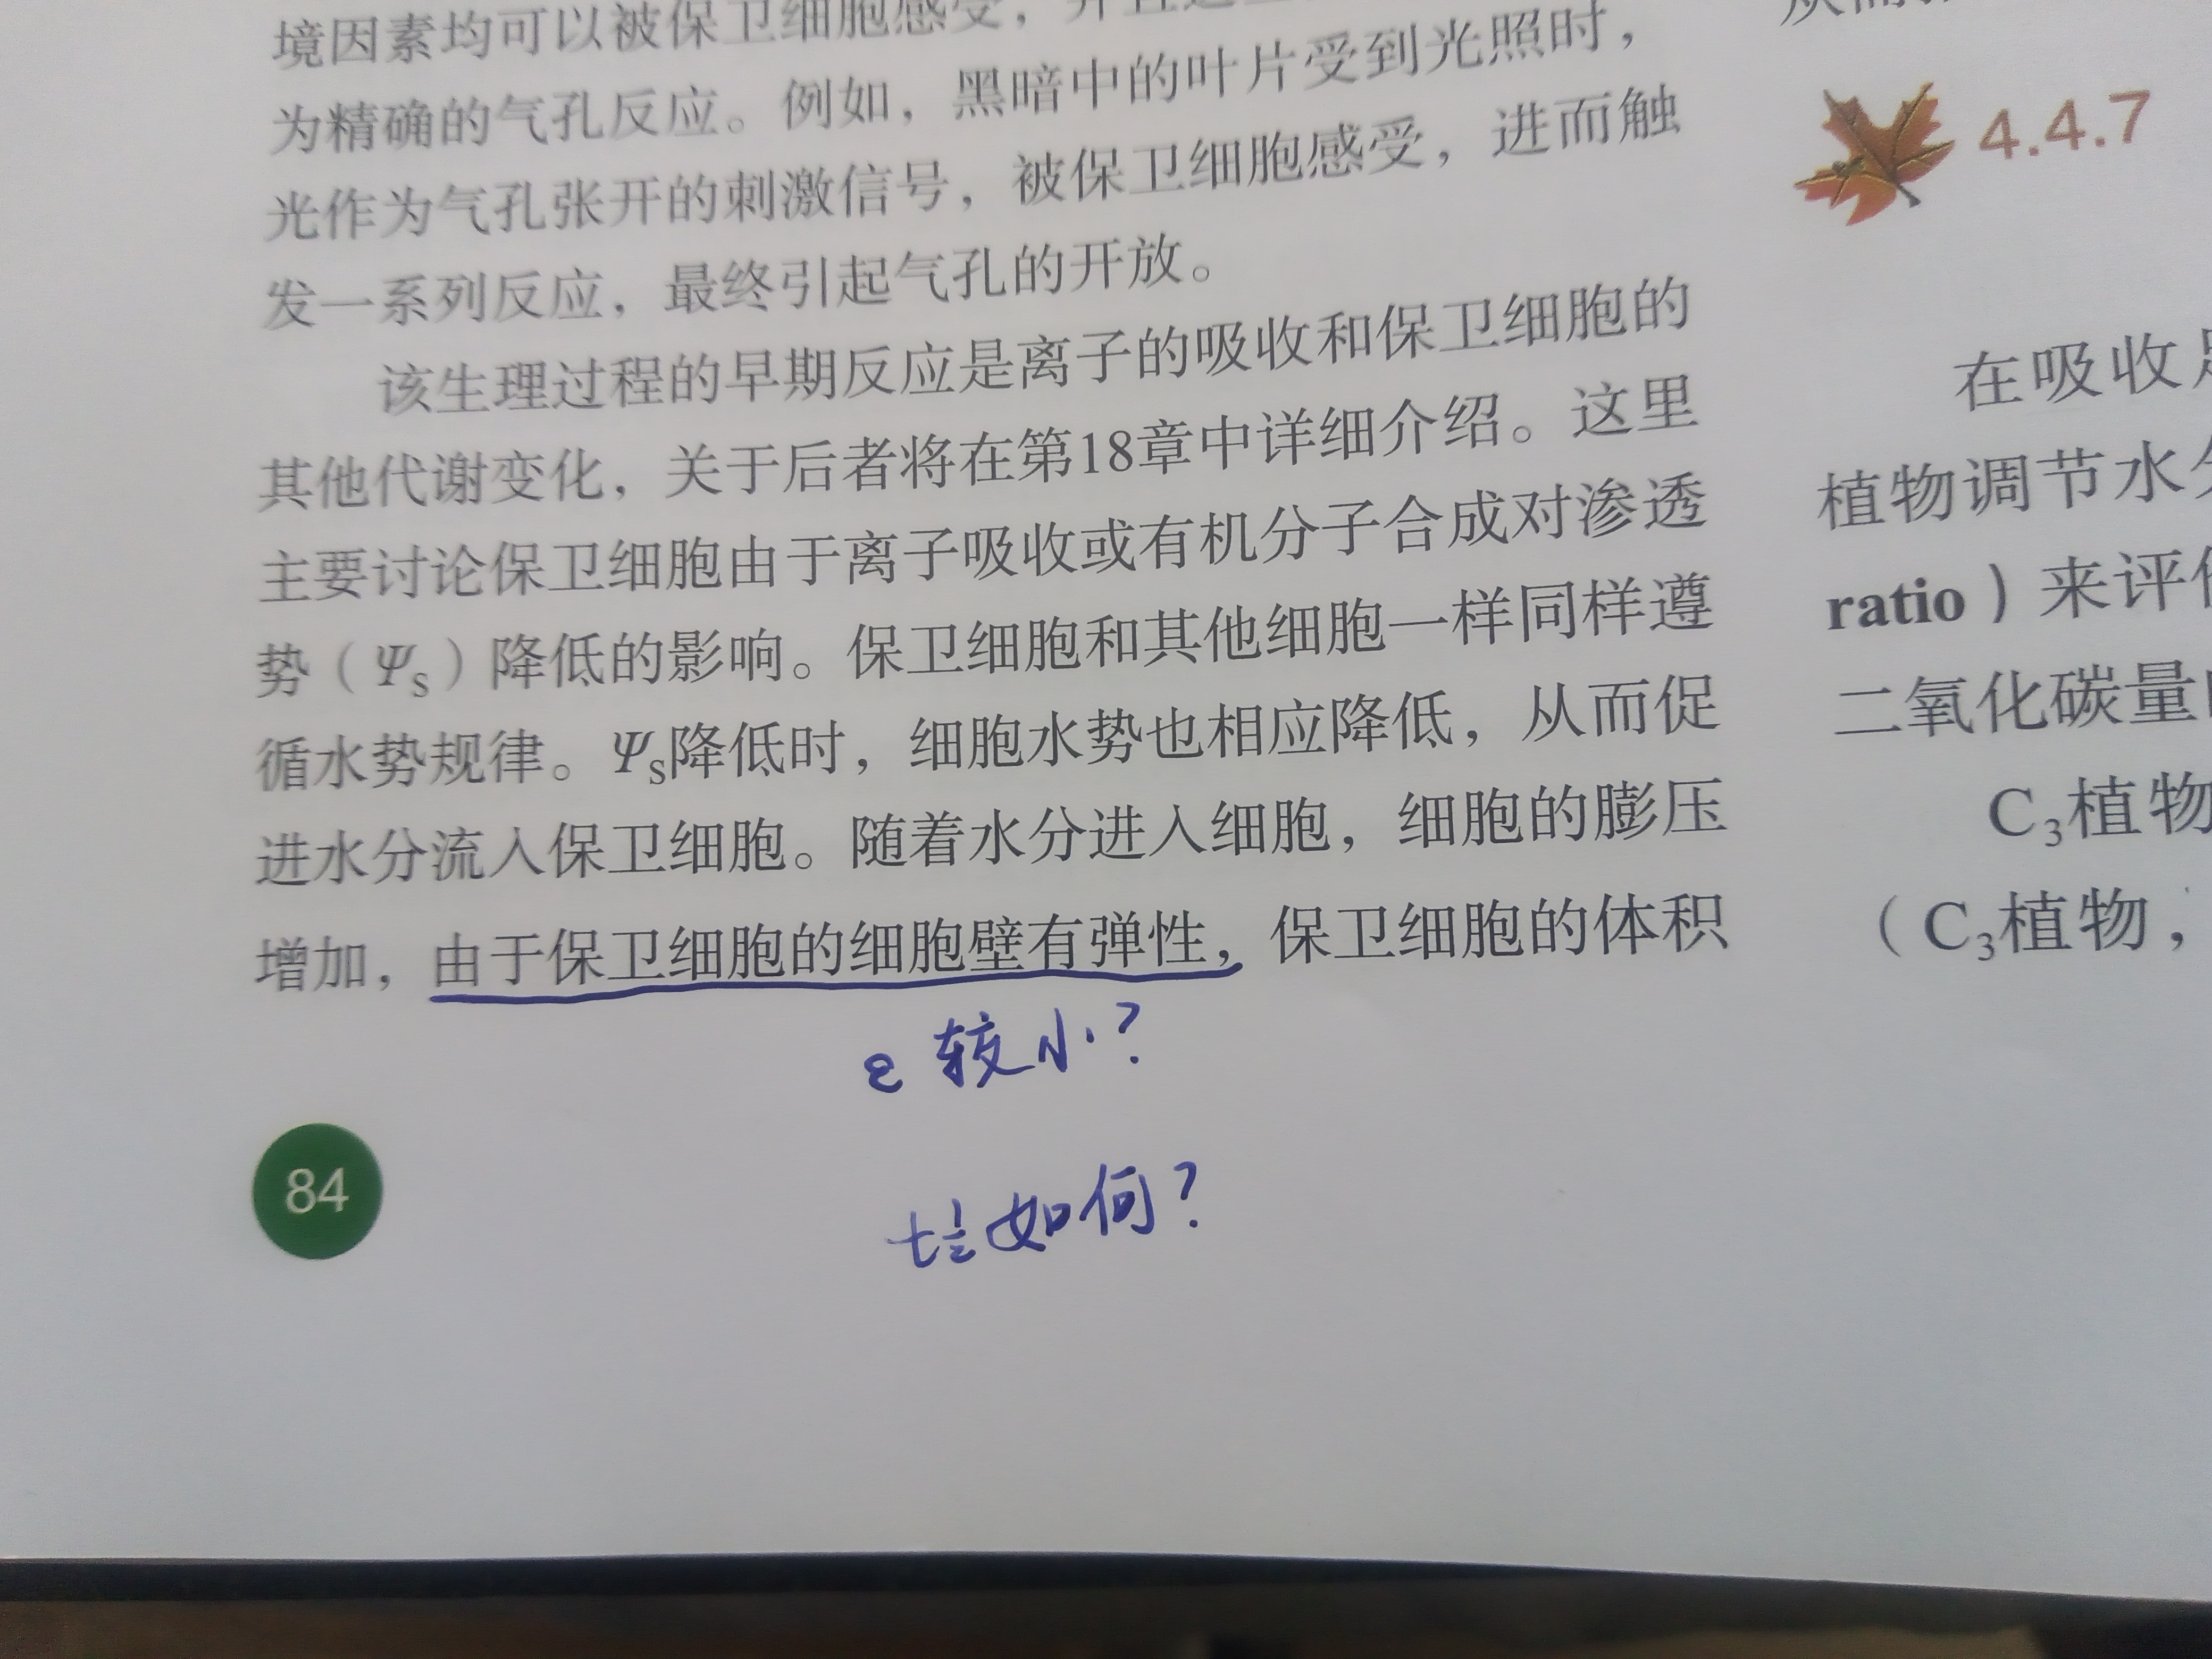 境因素均可以被保卫细胞感受，
为精确的气孔反应。例如，黑暗中的叶片受到光照时，
光作为气孔张开的刺激信号，被保卫细胞感受，进而触
发一系列反应，最终引起气孔的开放。
该生理过程的早期反应是离子的吸收和保卫细胞的
其他代谢变化，关于后者将在第18章中详细介绍。这里
主要讨论保卫细胞由于离子吸收或有机分子合成对渗透
势（Ψs）降低的影响。保卫细胞和其他细胞一样同样遵
循水势规律。Ψs降低时，细胞水势也相应降低，从而促
进水分流入保卫细胞。随着水分进入细胞，细胞的膨压
增加，由于保卫细胞的细胞壁有弹性，保卫细胞的体积
ε 较小？
t½如何？
84
4.4.7
在吸收
植物调节水
ratio）来评
二氧化碳量
C₃植物
（C₃植物，